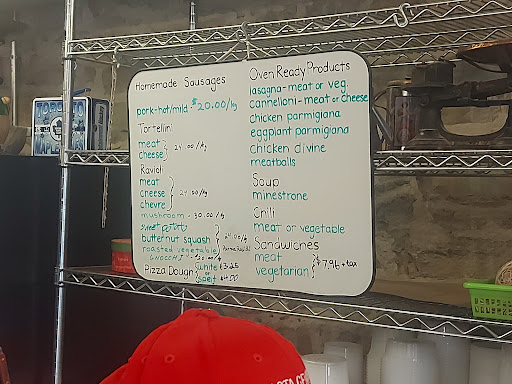 Homemade Sausages
pork-hot/mild - $20.00/kg
Tortellini
meat
cheese } 24.00/kg
Ravioli
meat
cheese
chevre } 24.00/kg
mushroom - 30.00/kg
sweet potato
butternut squash
roasted vegetable } 24.00/kg
GNOCCHI
Pizza Dough { white $3.25
or
spelt $4.00
Oven Ready Products
lasagna - meat or veg.
cannelloni - meat or cheese
chicken parmigiana
eggplant parmigiana
chicken divine
meatballs
Soup
minestrone
Chili
meat or vegetable
Sandwiches
meat
vegetarian } $7.96 + tax
TORONTO